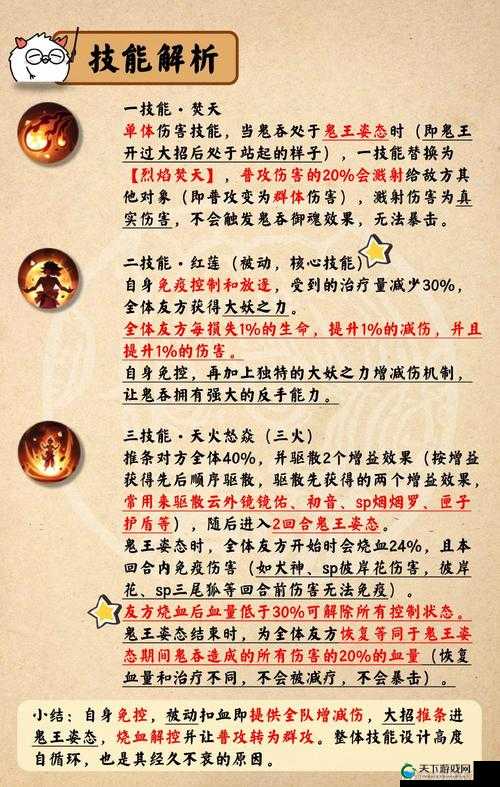 技能解析
一技能·焚天
单体伤害技能，当鬼吞处于鬼王姿态时（即鬼王
开过大招后处于站起的样子），一技能替换为
【烈焰焚天】，普攻伤害的20%会溅射给敌方其
他对象（即普攻变为群体伤害），溅射伤害为真
实伤害，不会触发鬼吞御魂效果，无法暴击。
二技能·红莲（被动，核心技能）
自身免疫控制和放逐，受到的治疗量减少30%，
全体友方获得大妖之力。
全体友方每损失1%的生命，提升1%的减伤，并且
提升1%的伤害。
自身免控，再加上独特的大妖之力增减伤机制，
让鬼吞拥有强大的反手能力。
三技能·天火怒焱（三火）
推条对方全体40%，并驱散2个增益效果（按增益
获得先后顺序驱散，驱散先获得的两个增益效果，
常用来驱散云外镜镜佑、初音、sp烟烟罗、匣子
护盾等），随后进入2回合鬼王姿态。
鬼王姿态时，全体友方开始时会烧血24%，且本
回合内免疫伤害（如犬神、sp彼岸花伤害，彼岸
花、sp三尾狐等回合前伤害无法免疫）。
友方烧血后血量低于30%可解除所有控制状态。
鬼王姿态结束时，为全体友方恢复等同于鬼王姿
态期间鬼吞造成的所有伤害的20%的血量（恢复
血量和治疗不同，不会被减疗，不会暴击）。
小结：自身免控，被动扣血即提供全队增减伤，大招推条进
鬼王姿态，烧血解控并让普攻转为群攻。整体技能设计高度
自循环，也是其经久不衰的原因。
天下游戏网